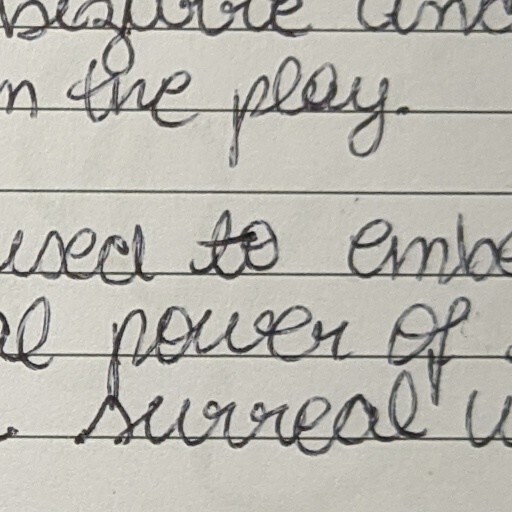 n the play.
used to embe
al power of
surreal